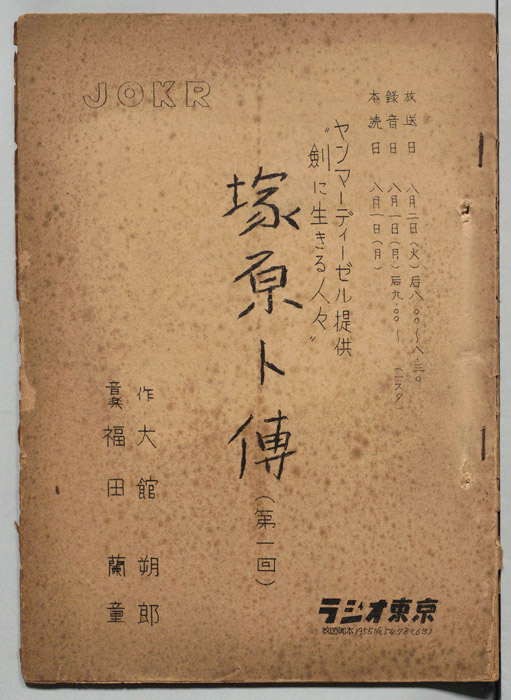 JOKR
放送日 八月二日(火)后八.〇〇〜八.三〇
録音日 八月一日(月)后九.〇〇〜 (一スタ)
本読日 八月一日(月)
ヤンマーディーゼル提供
"剣に生きる人々"
塚原卜傳(第一回)
作 大館朔郎
音楽 福田蘭童
ラジオ東京